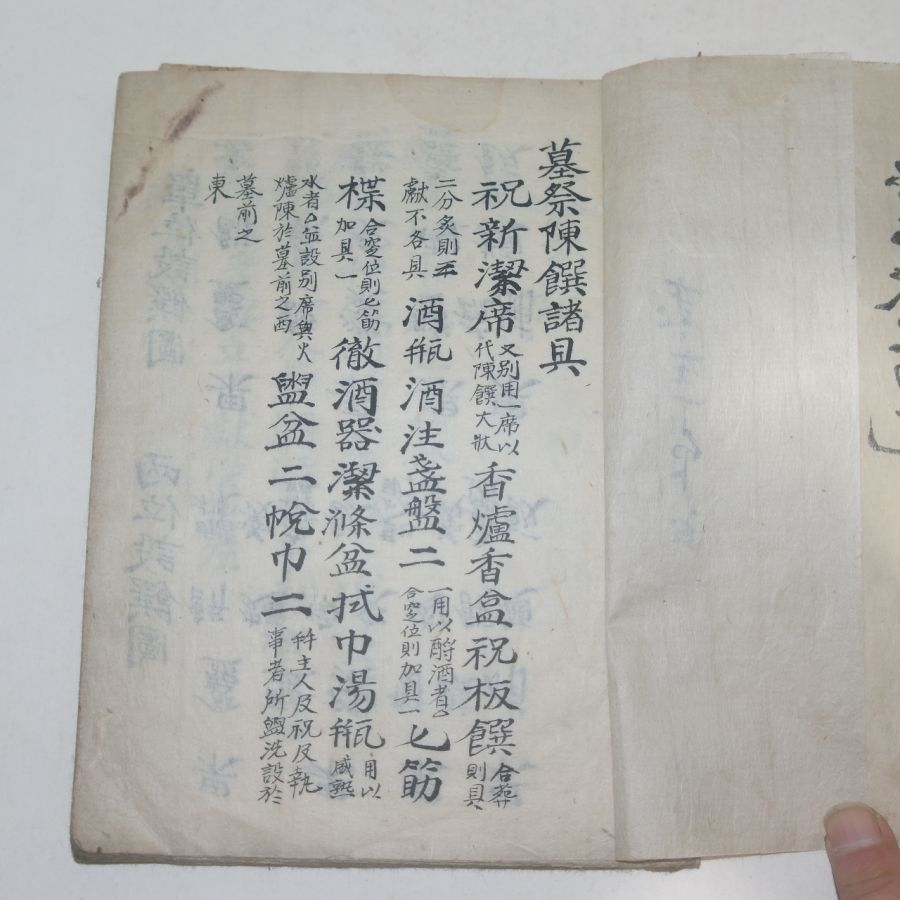 墓祭陳饌諸具
祝新潔席又別用一席以代陳饌大狀香爐香盒祝板饌合葬則具
二分炙則不獻不各具酒甁酒注盞盤二一用以酹酒者合窆位則加具一匕筯
楪合窆位則匕筯加具一徹酒器潔滌盆拭巾湯甁用以盛熟
水者並設別席與火爐陳於墓前之西盥盆二帨巾二主人及祝及執事者所盥洗設於
墓前之東